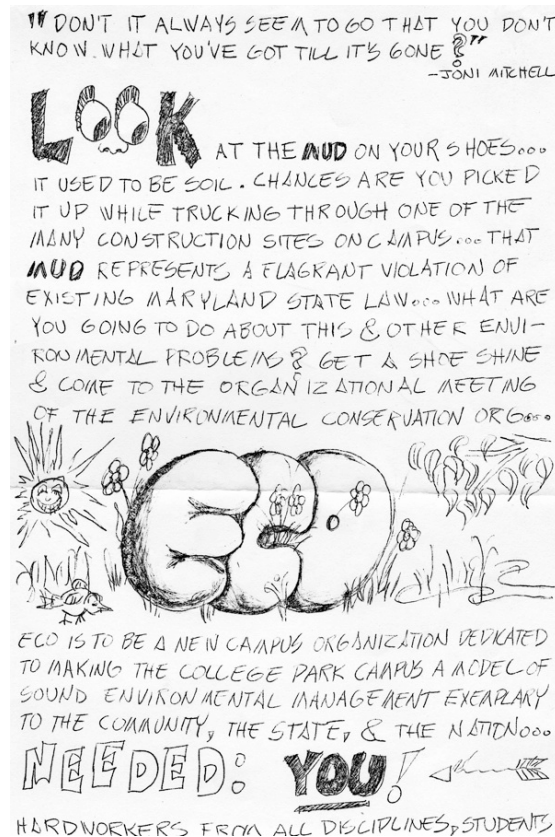 "DON'T IT ALWAYS SEEM TO GO THAT YOU DON'T
KNOW WHAT YOU'VE GOT TILL IT'S GONE?"
-JONI MITCHELL
LOOK AT THE MUD ON YOUR SHOES...
IT USED TO BE SOIL. CHANCES ARE YOU PICKED
IT UP WHILE TRUCKING THROUGH ONE OF THE
MANY CONSTRUCTION SITES ON CAMPUS... THAT
MUD REPRESENTS A FLAGRANT VIOLATION OF
EXISTING MARYLAND STATE LAW... WHAT ARE
YOU GOING TO DO ABOUT THIS & OTHER ENVI-
RONMENTAL PROBLEMS? GET A SHOE SHINE
& COME TO THE ORGANIZATIONAL MEETING
OF THE ENVIRONMENTAL CONSERVATION ORG...
ECO
ECO IS TO BE A NEW CAMPUS ORGANIZATION DEDICATED
TO MAKING THE COLLEGE PARK CAMPUS A MODEL OF
SOUND ENVIRONMENTAL MANAGEMENT EXEMPLARY
TO THE COMMUNITY, THE STATE, & THE NATION...
NEEDED: YOU!
HARDWORKERS FROM ALL DISCIPLINES, STUDENTS